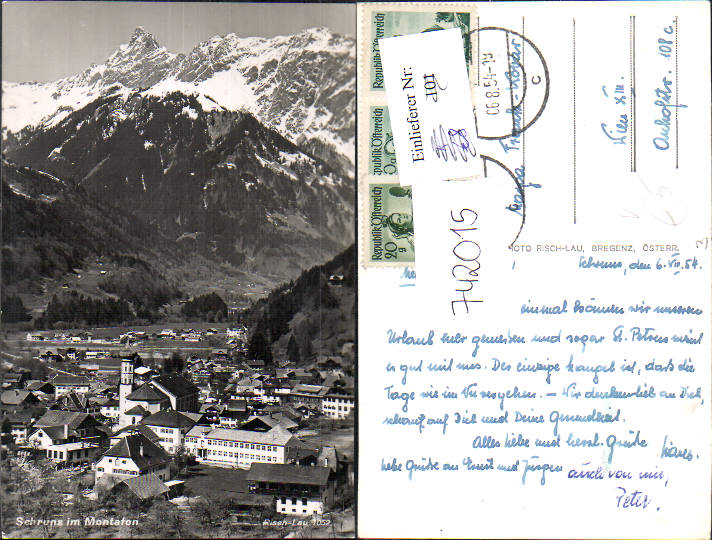 Schruns im Montafon
Risch-Lau 1052
Republik Österreich
Republik Österreich
Republik Österreich
20 g
Einlieferer Nr:
101
742015
06.8.54
C
Wien XIII.
108 c.
FOTO RISCH-LAU, BREGENZ, ÖSTERR.
Schruns, den 6. VIII. 54.
einmal können wir unseren
Urlaub sehr geniessen und sogar St. Petrus meint
es gut mit uns. Der einzige Mangel ist, dass die
Tage wie im Nu vergehen. – Wir denken lieb an Dich,
auf Dich und Deine Gesundheit.
Alles liebe und herzl. Grüße
liebe Grüße an Ernst und Jürgen auch von mir,
Peter.